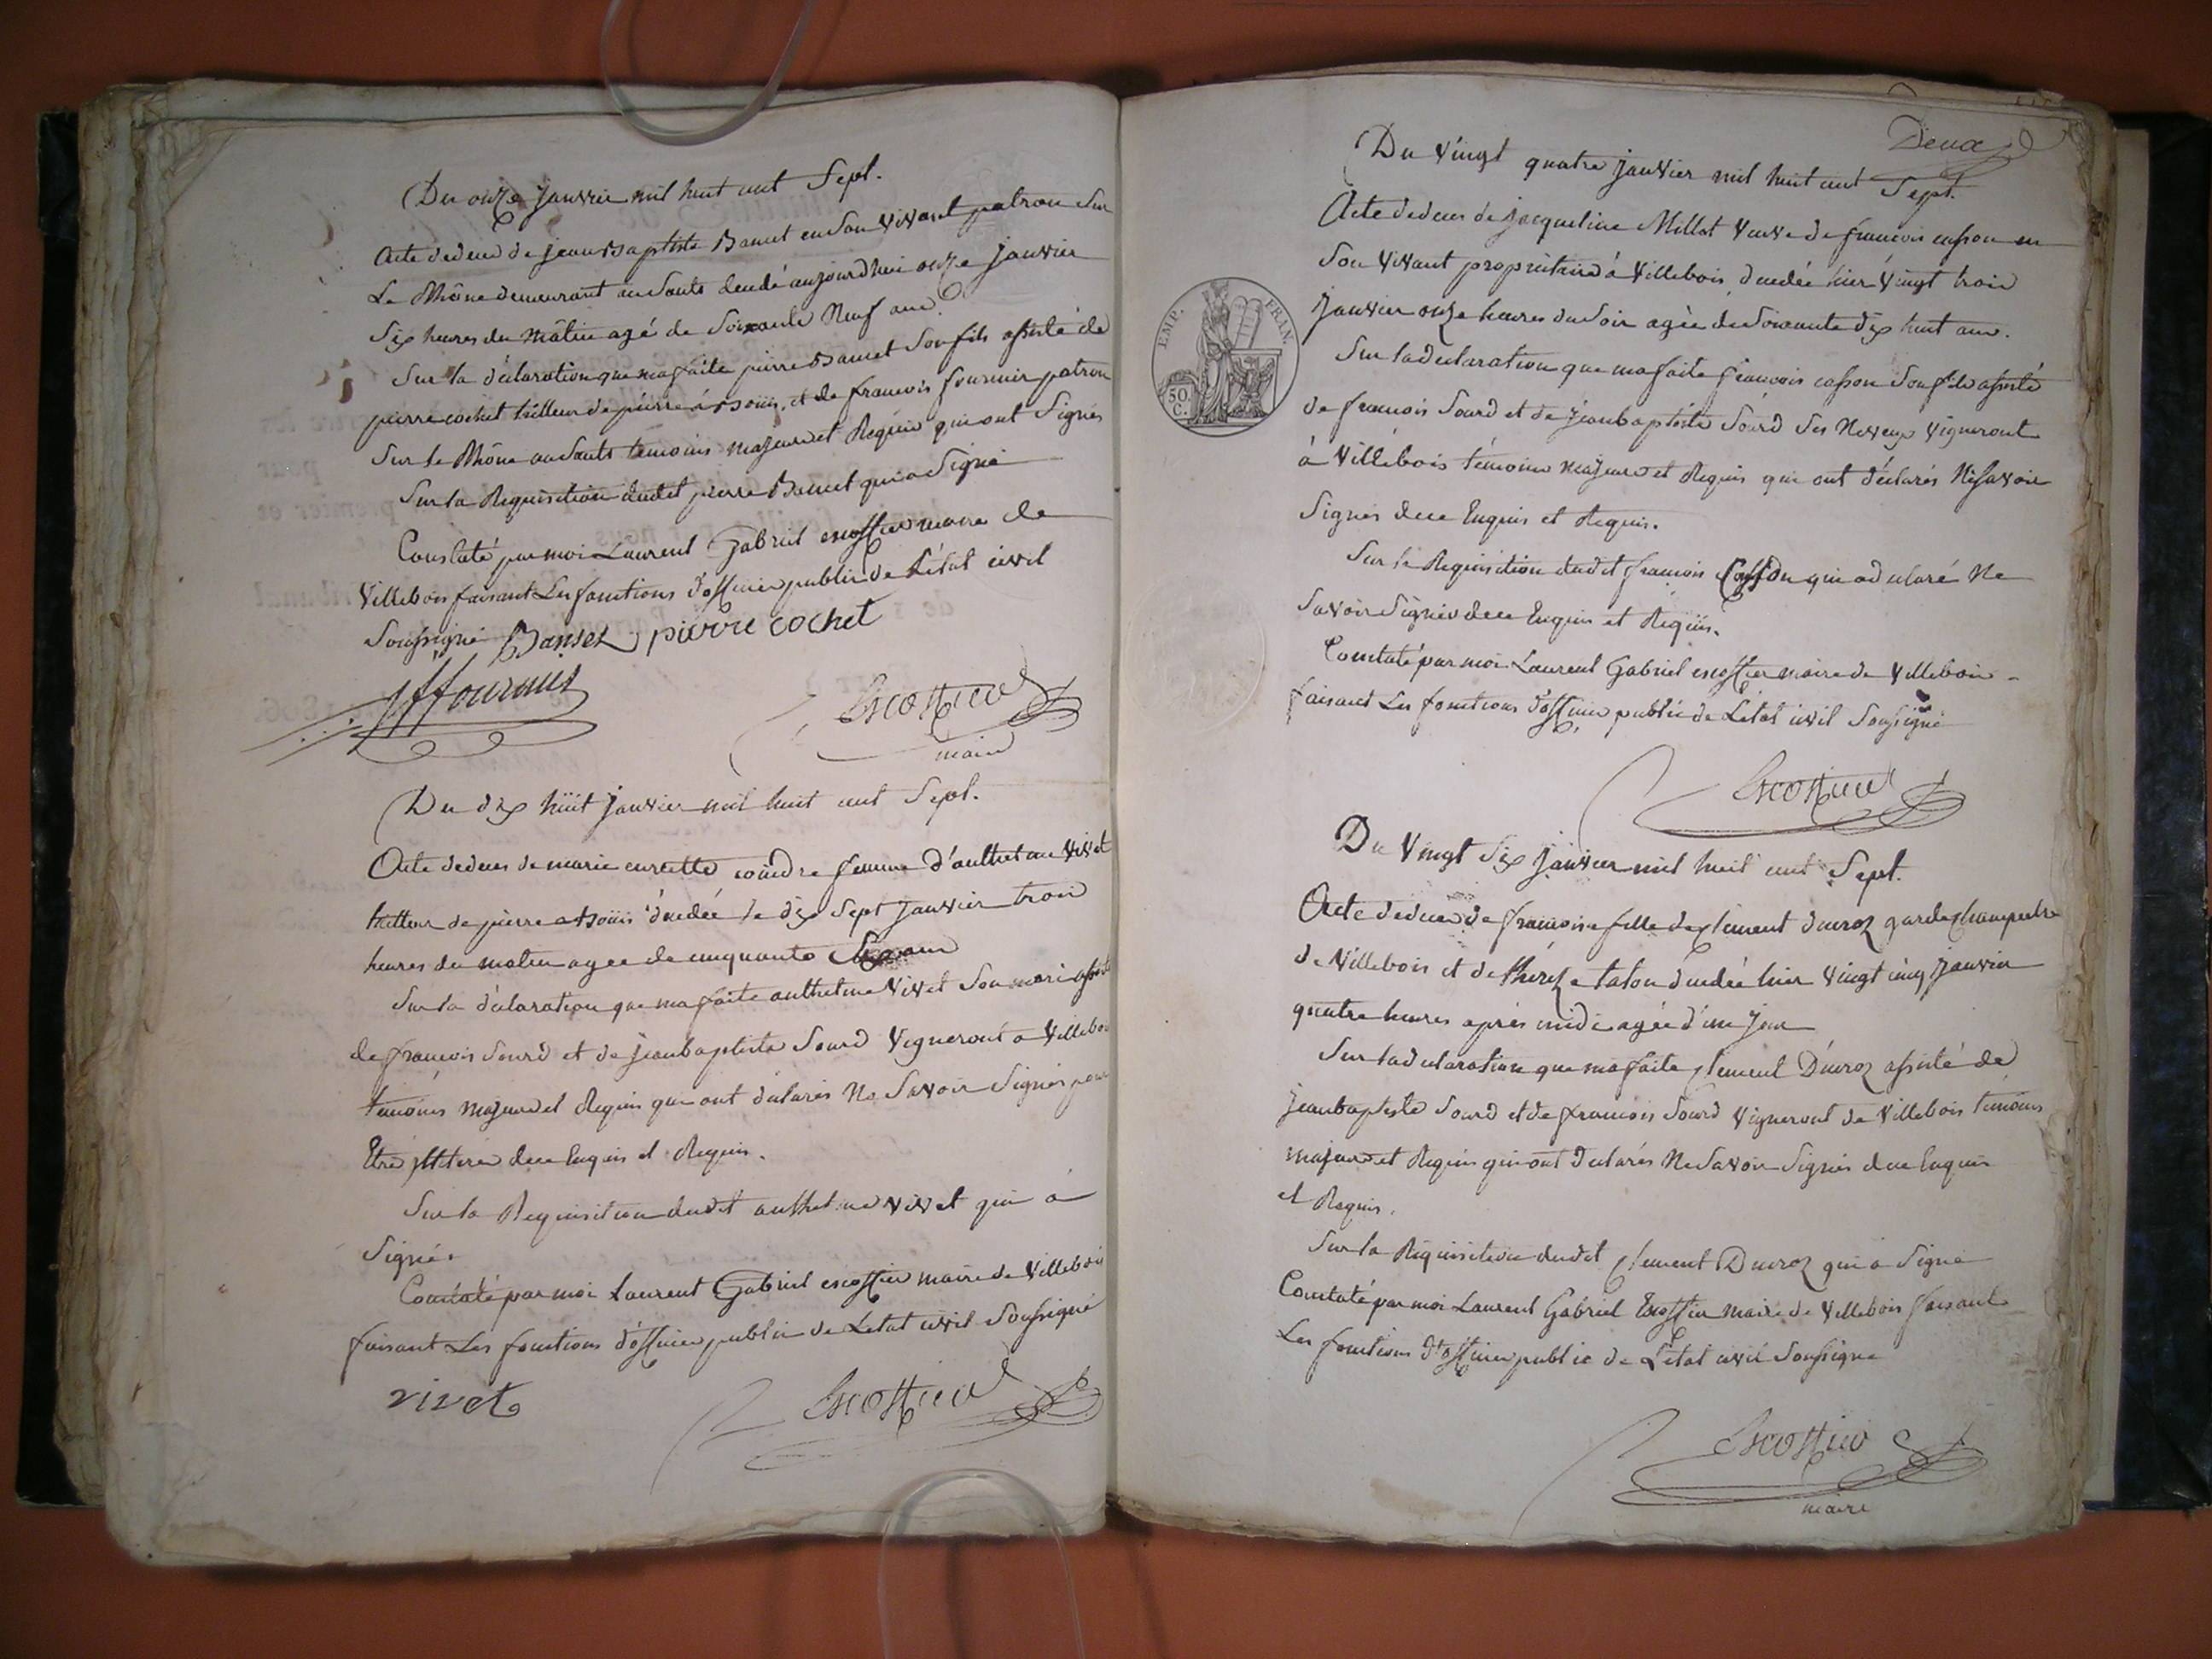 Du onze janvier mil huit cent Sept.
Acte dedeces de jean Baptiste Bancet en Son Vivant patron Sur
Le Rhône demeurant au Sault decedé aujourdhui onze janvier
Six heures du mâtin agé de Soixante Neuf ans
Sur la déclaration que ma faite pierre Bancet Son fils assisté de
pierre cochet tailleur de pierre à Bouis, et de francois fournier patron
Sur le Rhône au Sault temoins majeurs et Requis qui ont Signés
Sur la Requisition dudit pierre Bancet qui a Signé
Constaté par moi Laurent Gabriel escoffier maire de
Villebois faisant Les fonctions d'officier public de L'état civil
Soussigné Banset pierre cochet
jffournier
Escoffier
maire
Du dix huit janvier mil huit cent Sept.
Acte dedeces de marie cursette coindre femme d'anthelme Vivet
tailleur de pierre a Bouis décédée le dix Sept janvier trois
heures du matin agee de cinquante Six ans
Sur la déclaration que ma faite anthelme Vivet Son mari assisté
de francois Sourd et de jeanbaptiste Sourd Vigneront a Villebois
temoins majeurs et Requis qui ont déclarés Ne Savoir Signés pour
Etre jlliterés dece Enquis et Requis.
Sur la Requisition dudit anthelme Vivet qui a
Signé.
Constaté par moi Laurent Gabriel escoffier maire de Villebois
faisant Les fonctions d'officier public de Letat civil Soussigné
vivet
Escoffier
Deux
Du Vingt quatre janvier mil huit cent Sept.
Acte dedeces de jacqueline Millat Veuve de francois casson en
Son Vivant propriétaire à Villebois, decedée hier Vingt trois
janvier onze heures du Soir agée de Soixante dix huit ans.
EMP. FRAN.
50 C.
Sur la declaration que ma faite francois casson Son fils assisté
de francois Sourd et de jeanbaptiste Sourd Ses Neveux Vigneront
à Villebois témoins majeurs et Requis qui ont déclarés Ne Savoir
Signés dece Enquis et Requis.
Sur la Requisition dudit francois Casson qui a declaré Ne
Savoir Signer dece Enquis et Requis.
Constaté par moi Laurent Gabriel escoffier maire de Villebois
faisant Les fonctions d'officier public de L'etat civil Soussigné
Escoffier
Du Vingt Six janvier mil huit cent Sept.
Acte dedeces de francoise fille de clement ducroz garde champetre
de Villebois et de therèze talon decedée hier Vingt cinq janvier
quatre heures après midi agée d'un jour
Sur la declaration que ma faite clement Ducroz assisté de
jeanbaptiste Sourd et de francois Sourd Vigneront de Villebois temoins
majeurs et Requis qui ont declarés Ne Savoir Signés dece Enquis
et Requis.
Sur la Requisition dudit clement Ducroz qui a Signé
Constaté par moi Laurent Gabriel Escoffier maire de Villebois faisant
Les fonctions d'officier public de L'état civil Soussigné
Escoffier
maire